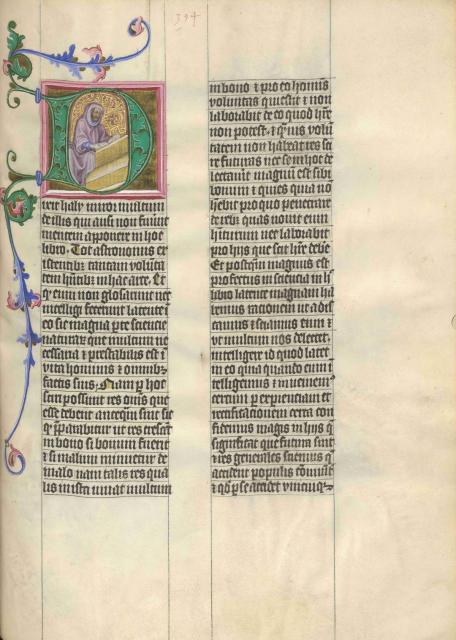 394
ixit haly miror multum
de illis qui ausi non fuerūt
mentem apponere in hoc
libro . Tot astronomis ex
istentibꝫ tantam volūta
tem hn̄tibꝫ in hac arte . Et
qꝫ eum non glosauerūt nec
intelligi fecerunt latente ī
eo sic magna pͣte scientie
nature que multum ne
cessaria ⁊ prestabilis est ī
vita hominis ⁊ omnibꝫ
factis suis . Nam per hoc
sciri possunt res om̄s que
esse debent anteqͣm sint sic
qꝫ p̄parabitur ut res crescat
in bono si bonum fuerit
⁊ si malum minuetur de
malo nam talis res qua
lis ista iuuat multum
in bono ⁊ pro eo hominis
voluntas quiescit ⁊ non
laborabit de eo quod hr̄e
non potest . ⁊ qͣmuis volū
tatem non habeat res sci
re futuras nec se in hoc de
lectauerit magnū est sibi
bonum ⁊ quies quia nō
hēbit pro quo penetrare
de rebꝫ quas nouit eum
hiturum nec laborabit
pro hijs que scit hr̄e debē
Et postqͣm magnus est
profectus in sciencia in hͦ
libro latente magnam ha
bemus racionem ut adis
camus ⁊ sciamus eum ⁊
ut multum nos delectet
intelligere id quod latet
in eo quia quando eum ī
telligemus ⁊ inueniem9
certum per experienciam ⁊
rectificationem certa con
fidemus magis in hijs q̄
significat que futura sint
⁊ res generales sciemus q̄
accident populis cōmūit̄
⁊ qd̄ ꝑ se accidet vnicuiqꝫ